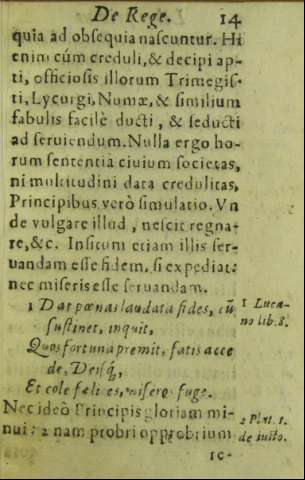 De Rege. 14
quia ad obsequia nascuntur. Hi
enim cúm creduli, & decipi ap-
ti, officiosis illorum Trimegis-
ti, Lycurgi, Numæ, & similium
fabulis facilè ducti, & seducti
ad seruiendum. Nulla ergo ho-
rum sententia ciuium societas,
ni multitudini data credulitas,
Principibus verò simulatio. Vn
de vulgare illud, nescit regna-
re, &c. Insitum etiam illis ser-
uandam esse fidem, si expediat:
nec miseris esse seruandam.
1 Dat pœnas laudata fides, cũ
sustinet, inquit,
Quos fortuna premit, fatis acce
de, Deisq,
Et cole felices, misero fuge.
Nec ideò Principis gloriam mi-
nui: 2 nam probri opprobrium
ic-
1 Luca-
no lib. 8.
2 Plat. 1.
de iusto.